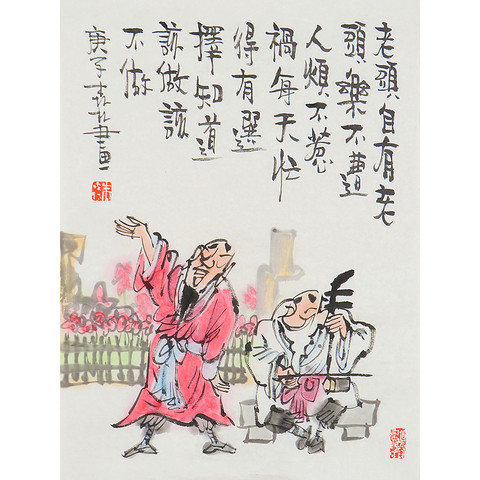 老頭自有老
頭樂不遭
人煩不惹
禍每天忙
得有選
擇知道
該做該
不做
庚子春林畫